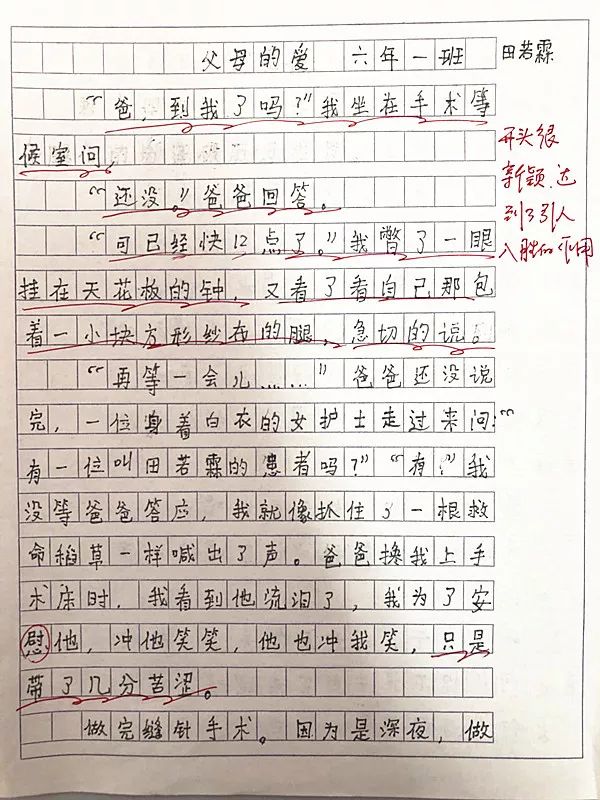 父母的爱 六年一班 田若霖
“爸，到我了吗？”我坐在手术等
候室问，
“还没。”爸爸回答。
“可已经快12点了。”我瞥了一眼
挂在天花板的钟，又看了看自己那包
着一小块方形纱布的腿，急切的说。
“再等一会儿……”爸爸还没说
完，一位身着白衣的女护士走过来问：
有一位叫田若霖的患者吗？”“有？”我
没等爸爸答应，我就像抓住了一根救
命稻草一样喊出了声。爸爸搀我上手
术床时，我看到他流泪了，我为了安
慰他，冲他笑笑，他也冲我笑，只是
带了几分苦涩。
做完缝针手术。因为是深夜，做
开头很
新颖，达
到了引人
入胜的作用